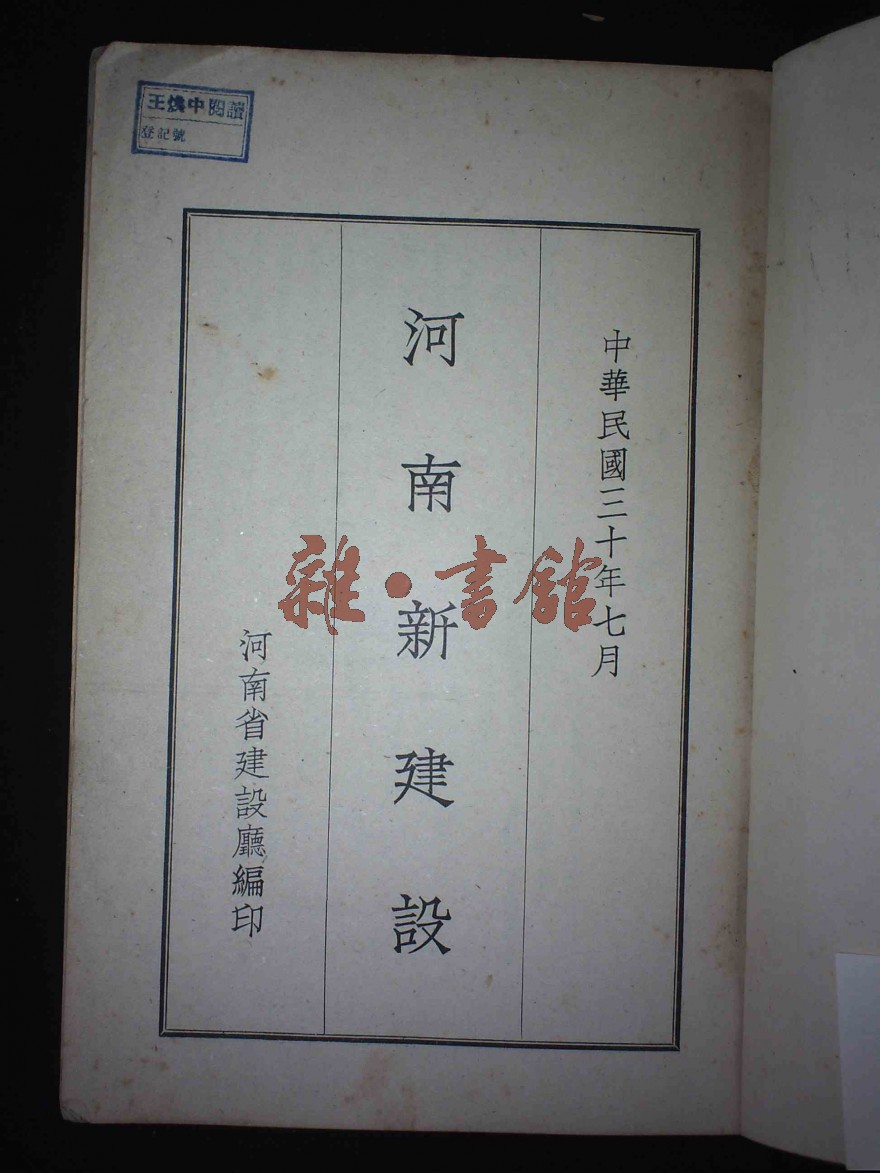 王煥中閱讀
登記號
中華民國三十年七月
河南新建設
河南省建設廳編印
雜·書館